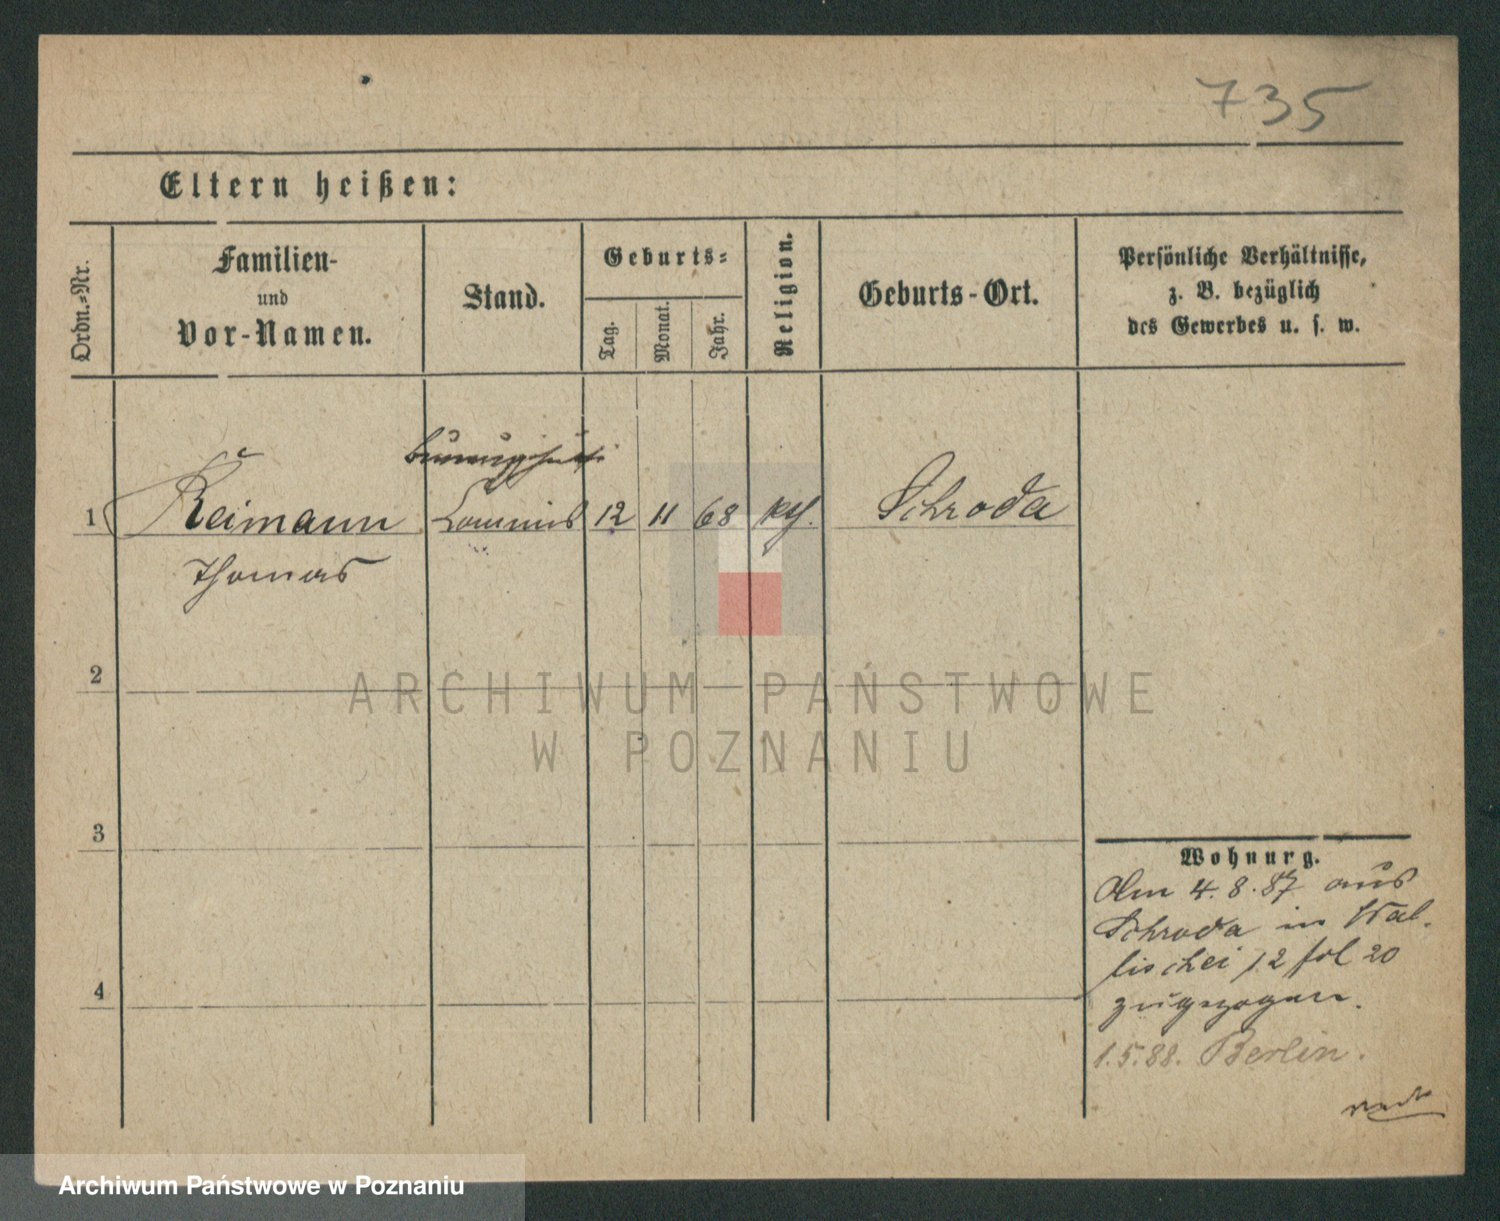 735
Eltern heißen:
Ordn.=Nr.
Familien-
und
Vor-Namen.
Stand.
Geburts=
Tag.
Monat.
Jahr.
Religion.
Geburts-Ort.
Persönliche Verhältnisse,
z. B. bezüglich
des Gewerbes u. s. w.
1 Reimann Commis 12 11 68 kth. Schroda
Thomas
2
3
4
Wohnung.
Am 4.8.87 aus
Schroda in Wal-
lischei 12 fol 20
zugezogen.
1.5.88. Berlin.
ARCHIWUM PAŃSTWOWE
W POZNANIU
Archiwum Państwowe w Poznaniu